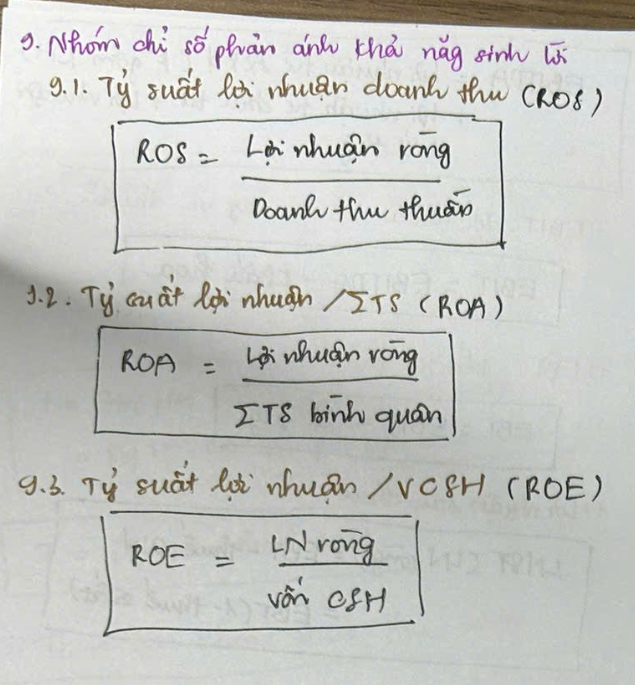 9. Nhóm chỉ số phản ánh khả năg sinh lời
9.1. Tỷ suất lợi nhuận doanh thu (ROS)
ROS = Lợi nhuận ròng
Doanh thu thuần
9.2. Tỷ suất lợi nhuận /ΣTS (ROA)
ROA = Lợi nhuận ròng
ΣTS bình quân
9.3. Tỷ suất lợi nhuận /VCSH (ROE)
ROE = LN ròng
vốn CSH